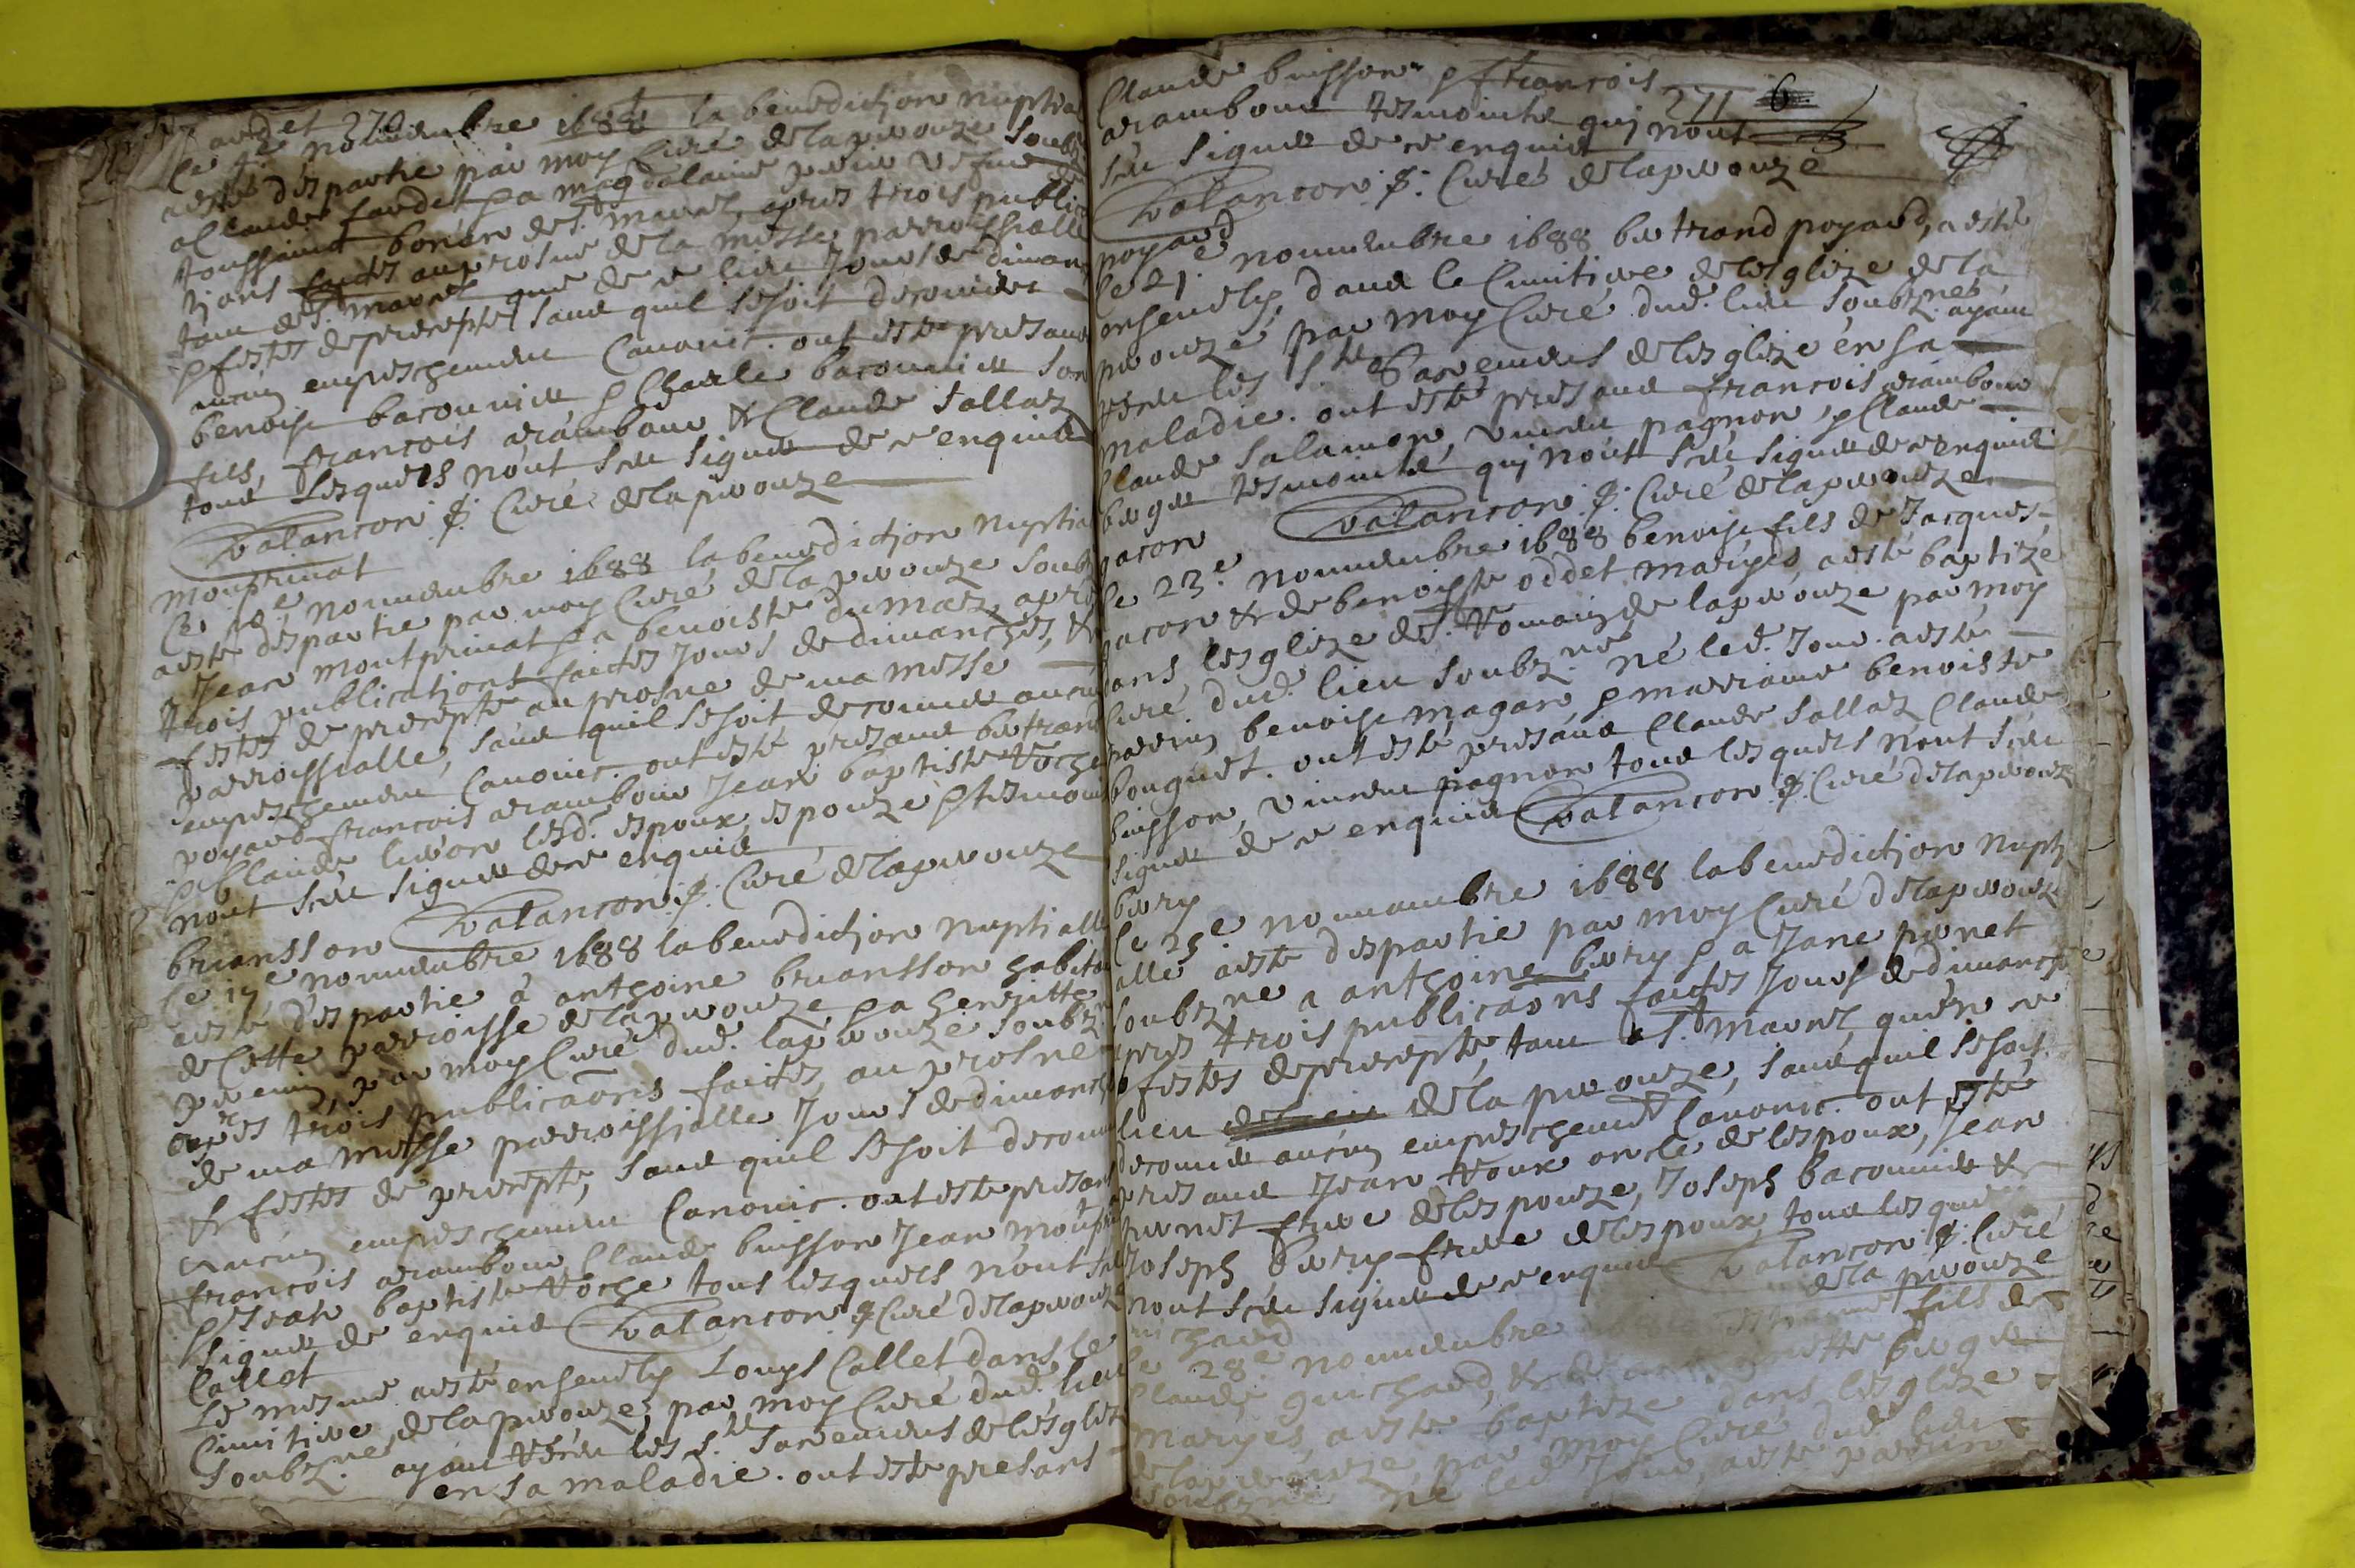 270
le novembre 1688 la benediction nuptia
a esté despartie par moy Curé de laperouze soubz
a Claude fardet & a magdalaine vefve de
toussainct de St. maurel, apres trois public
tions faictes au prosne de la messe parroissialle
tant de St. maurel que de ce lieu jours de diman
& festes de precepte sans quil se soit descouvert
aucun empeschement Canonic. ont esté presans
benoist bacounier & Charle bacounier son
fils, francois arambour & Claude Sallaz
tous Lesquels n'ont sceu signer de ce enquis
Valancon p. Curé delaperouze
montprivat
le novembre 1688 la benediction nuptia
a esté despartie par moy Curé de la perouze soubz
a Jean montprivat & a benoiste dumaz, apres
trois publications faictes jours de dimanches, &
festes de precepte au prosne de ma messe
parroissialle, sans quil se soit descouvert aucun
empeschement Canonic. ont esté presans bertrand
poyard francois arambour Jean baptiste Roche
& Claude lesd. espoux, espouze & tesmoins
n'ont sceu signer de ce enquis
Valancon p. Curé delaperouze
briansson
le 17e novembre 1688 la benediction nuptialle
a esté despartie a anthoine briansson habitan
de Cette parroisse delaperouze, & a henriette
par moy Curé dud. laperouze soubzne
apres trois publicaons faictes, au prosne
de ma messe parroissialle jours de dimanche
& festes de precepte, sans quil se soit descouv
aucun empeschement Canonic. ont esté presans
francois arambour, Claude buisson Jean montpri
& Jean baptiste Roche tous lesquels n'ont sceu
signer de enquis Valancon p Curé delaperouze
Callet
Le mesme a esté ensevely Louys Callet, dans le
Cimitiere delaperouze, par moy Curé dud. lieu
soubzne. ayant receu les Sts Sacremens de lesglize
en sa maladie. ont esté presans
Claude buisson & francois 271
arambour tesmoints qui n'ont
sceu signer de ce enquis
Valancon p. Curé delaperouze
poyard
le 21e novembre 1688 bertrand poyard, a esté
ensevely, dans le Cimitiere de lesglize de la
perouze par moy Curé dud. lieu soubzne. ayant
receu les Sts Sacremens de lesglize en sa
maladie. ont esté presans francois arambour
Claude Salamon, vincen pagnon, & Claude
berger tesmoints qui n'ont sceu signer de ce enquis
Valancon p. Curé delaperouze
jacon
le 23e. novembre 1688 benoist fils de Jacques
jacon & de benoiste oddet maryés, a esté baptizé
dans lesglize de St. Romain de laperouze par moy
Curé dud. lieu soubzne né led. jour. a esté
parrin benoist magan & marraine benoiste
bouquet. ont esté presans Claude Sallaz Claude
buisson, vincen pagnon tous lesquels n'ont sceu
signer de ce enquis Valancon p. Curé delaperouze
bery
Le 25e novembre 1688 la benediction nupti
alle a esté despartie par moy Curé delaperouze
soubzne a anthoine bery & a Jane pernet
apres trois publicaons faictes jours de dimanche
& festes de precepte, tant a St. maurel, qu'en ce
lieu de la perouze, sans quil se soit
descouvert aucun empeschemt Canonic. ont esté
presans Jean Roux oncle de lespoux, Jean
pernet frere de lespouze, Joseph bacounier &
Joseph bery frere de lespoux, tous lesquels
n'ont sceu signer de ce enquis Valancon p. Curé
de la perouze
guichard
le 28e novembre fils de
Claude guichard, & de berger
maryés, a esté baptizé dans lesglize
delaperouze, par moy Curé dud. lieu
soubzne né led. jour, a esté parrin